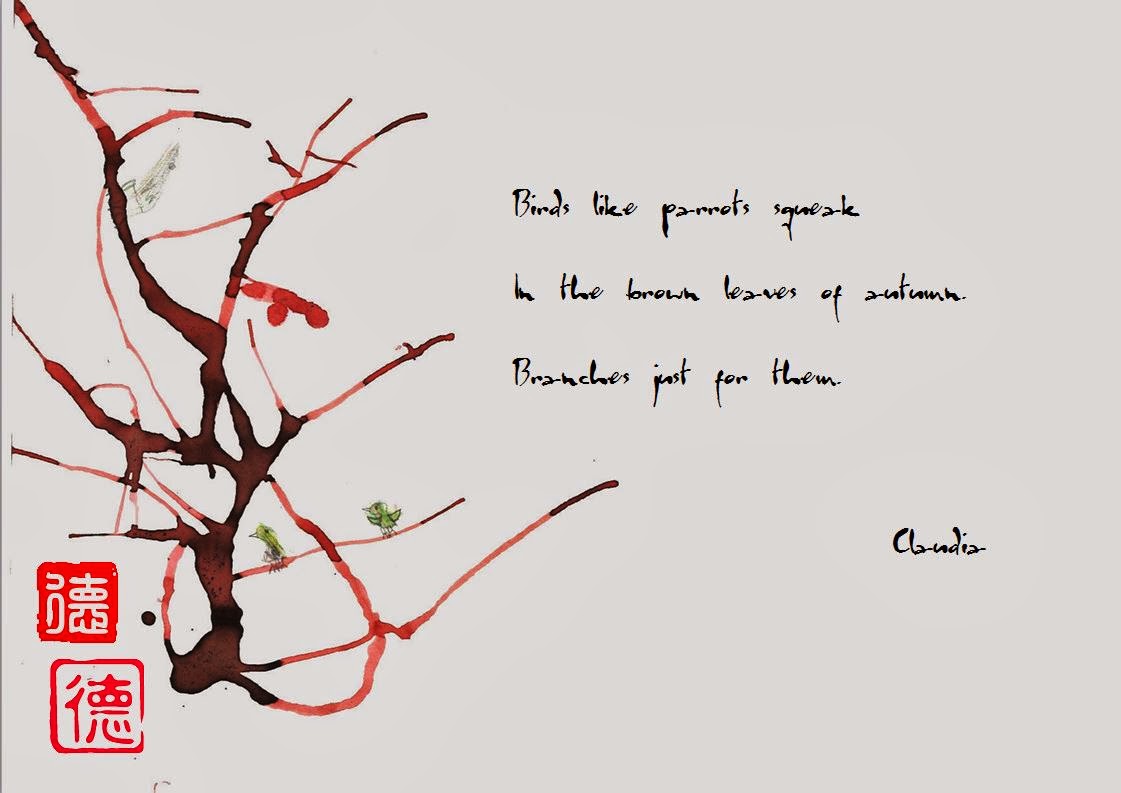 Birds like parrots squeak
In the brown leaves of autumn.
Branches just for them.
Claudia
德
德